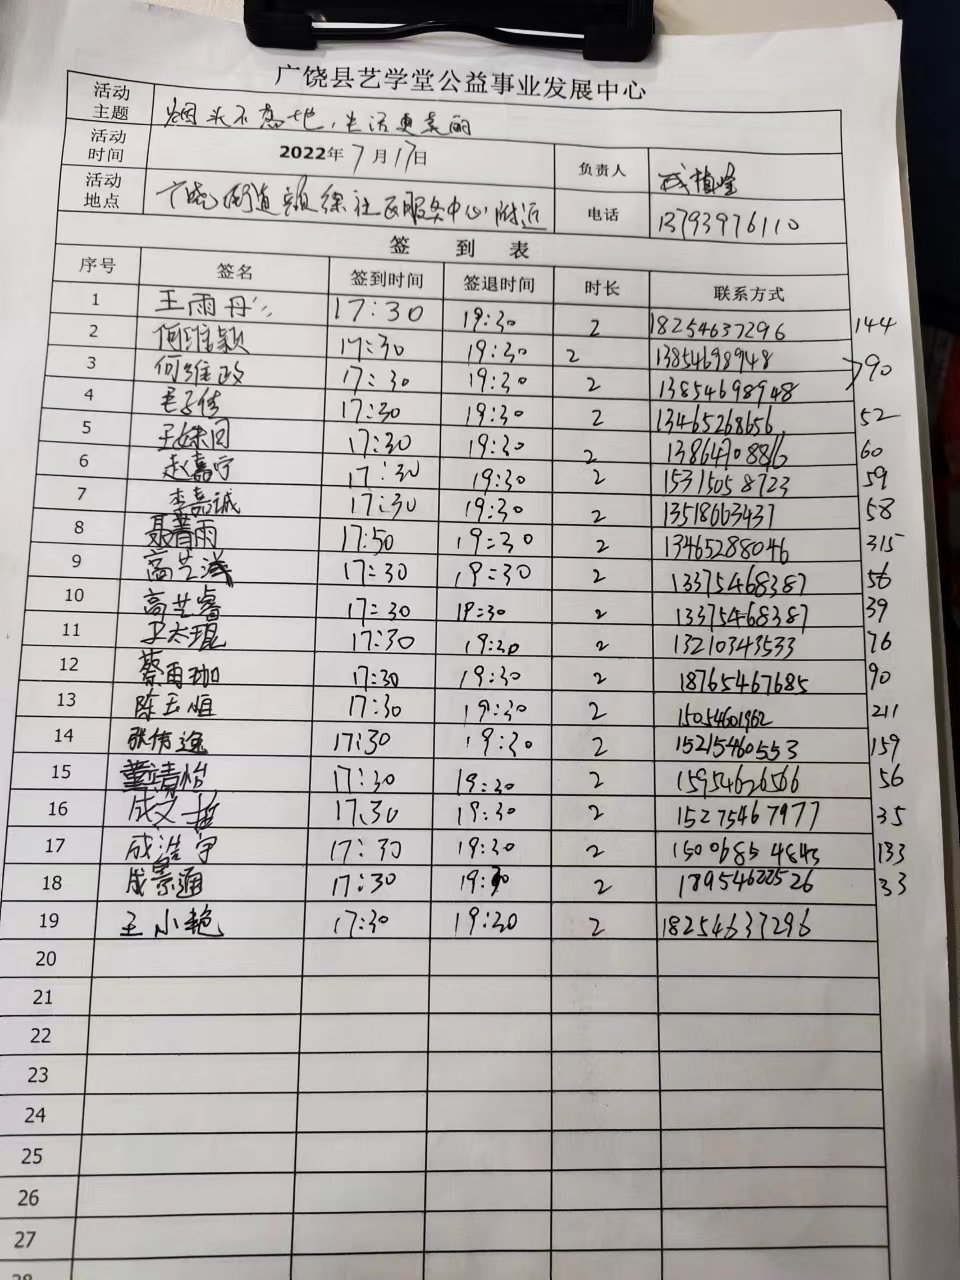 广饶县艺学堂公益事业发展中心
活动主题 烟头不落地，生活更美丽
活动时间 2022年7月17日 负责人
活动地点 广饶街道 社区服务中心附近 电话 13793976110
签到表
序号 签名 签到时间 签退时间 时长 联系方式
1 王雨丹 17:30 19:30 2 18254637296 144
2 何维颖 17:30 19:30 2 13854698948
3 何维政 17:30 19:30 2 13854698948 >90
4 毛子倩 17:30 19:30 2 13465268656 52
5 17:30 19:30 2 60
6 赵嘉宁 17:30 19:30 2 15315058723 59
7 李嘉诚 17:30 19:30 2 13518663437 58
8 聂菁雨 17:50 19:30 2 13465288046 315
9 高艺 17:30 19:30 2 13375468387 56
10 高艺睿 17:30 19:30 2 13375468387 39
11 17:30 19:30 2 13210343533 76
12 蔡雨珈 17:30 19:30 2 18765467685 90
13 陈玉恒 17:30 19:30 2 15054601962 211
14 张倩逸 17:30 19:30 2 15215460553 159
15 董靖怡 17:30 19:30 2 15954626566 56
16 成文哲 17:30 19:30 2 15275467977 35
17 成浩宇 17:30 19:30 2 15006854843 133
18 成景通 17:30 19:30 2 18954622526 33
19 王小艳 17:30 19:30 2 18254637296
20
21
22
23
24
25
26
27
28